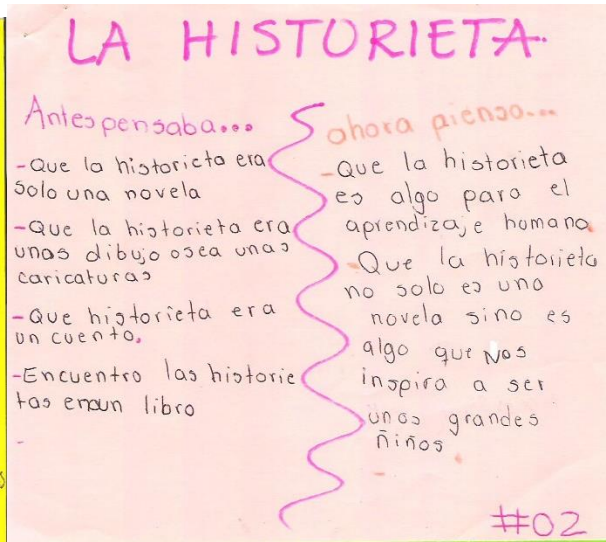 LA HISTORIETA
Antes pensaba...
-Que la historieta era
solo una novela
-Que la historieta era
unas dibujo osea unas
caricaturas
-Que historieta era
un cuento.
-Encuentro las historie
tas en un libro
-
ahora pienso...
-Que la historieta
es algo para el
aprendizaje humano.
-Que la historieta
no solo es una
novela sino es
algo que Nos
inspira a ser
unos grandes
ñiños.
-
#02